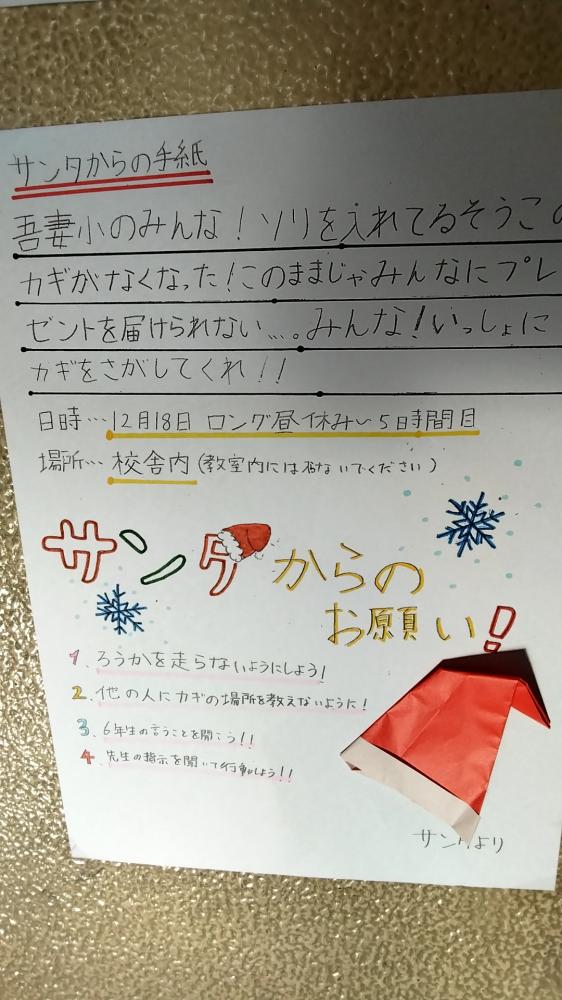 サンタからの手紙
吾妻小のみんな！ソリを入れてるそうこの
カギがなくなった！このままじゃみんなにプレ
ゼントを届けられない…。みんな！いっしょに
カギをさがしてくれ！！
日時…12月18日 ロング昼休み～5時間目
場所…校舎内（教室内にはないでください）
サンタからの
お願い！
1.ろうかを走らないようにしよう！
2.他の人にカギの場所を教えないように！
3.6年生の言うことを聞こう！！
4.先生の指示を聞いて行動しよう！！
サンタより